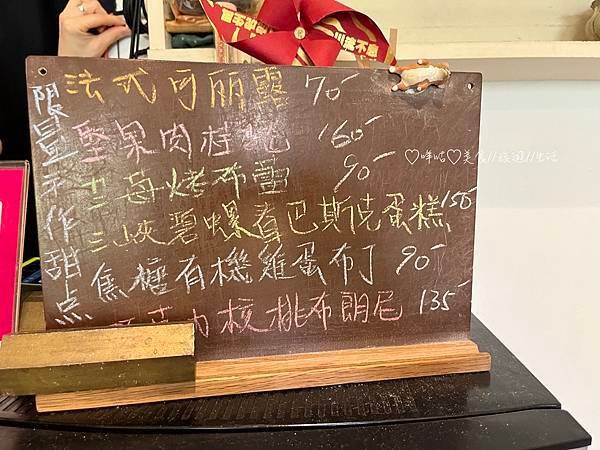 限量手作甜点
法式可丽露 70-
堅果肉桂捲 160-
莓烤布蕾 90-
三峽碧螺春巴斯克蛋糕 150-
焦糖有機雞蛋布丁 90-
力核桃布朗尼 135-
♡咩咕♡美食//旅遊//生活